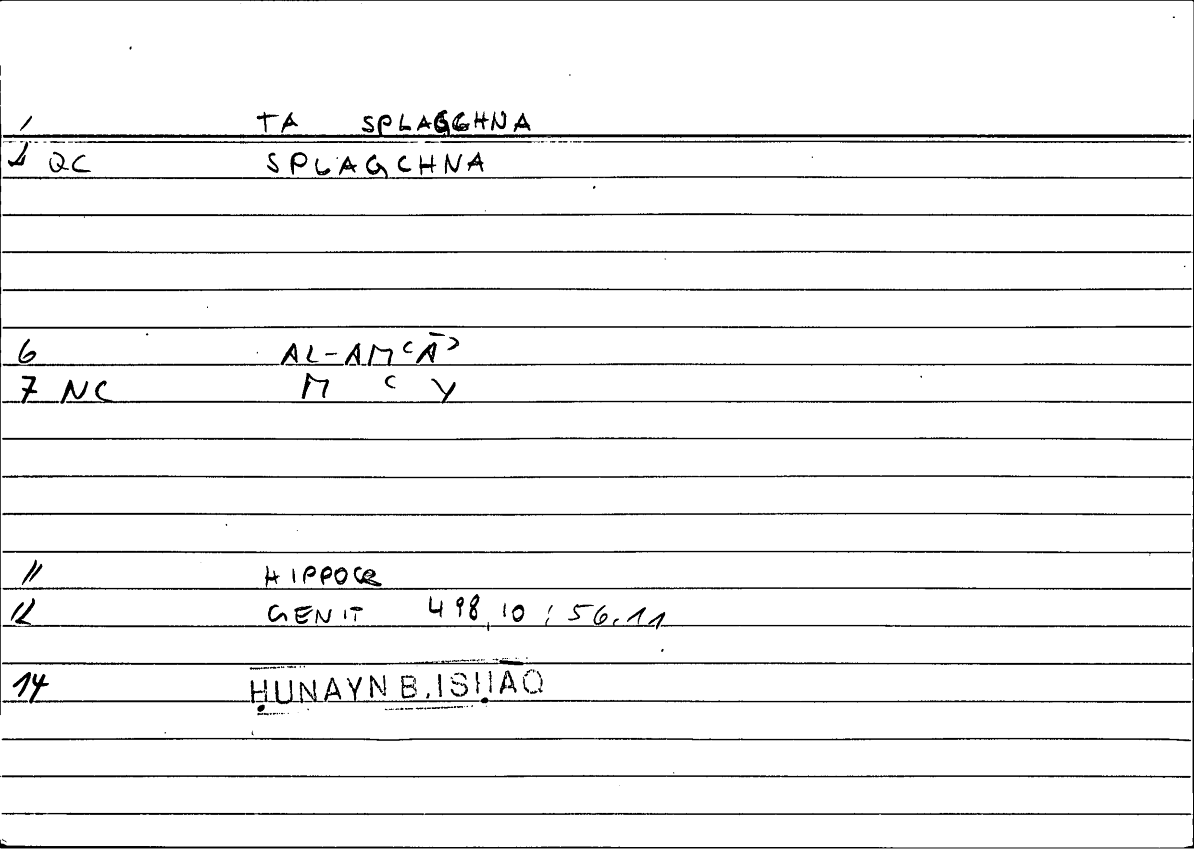 1 TA SPLAGGHNA
4 QC SPLAGCHNA
6 AL-AMʿĀʾ
7 NC M ʿ Y
11 HIPPOCR
12 GENIT 498,10 ; 56,11
14 ḤUNAYN B. ISḤĀQ